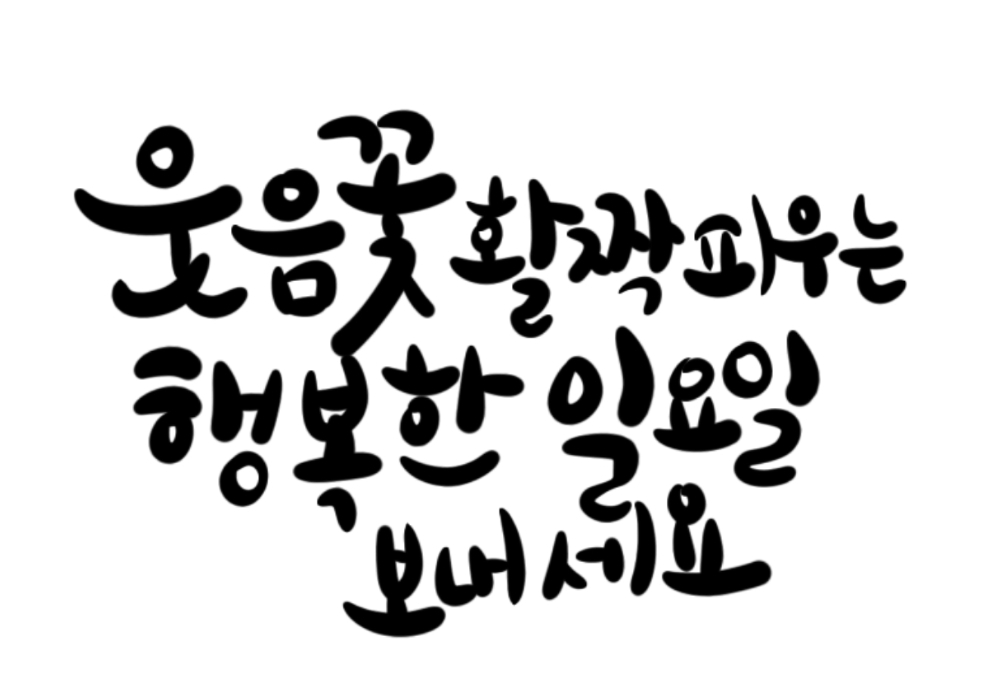 웃음꽃 활짝 피우는
행복한 일요일
보내세요